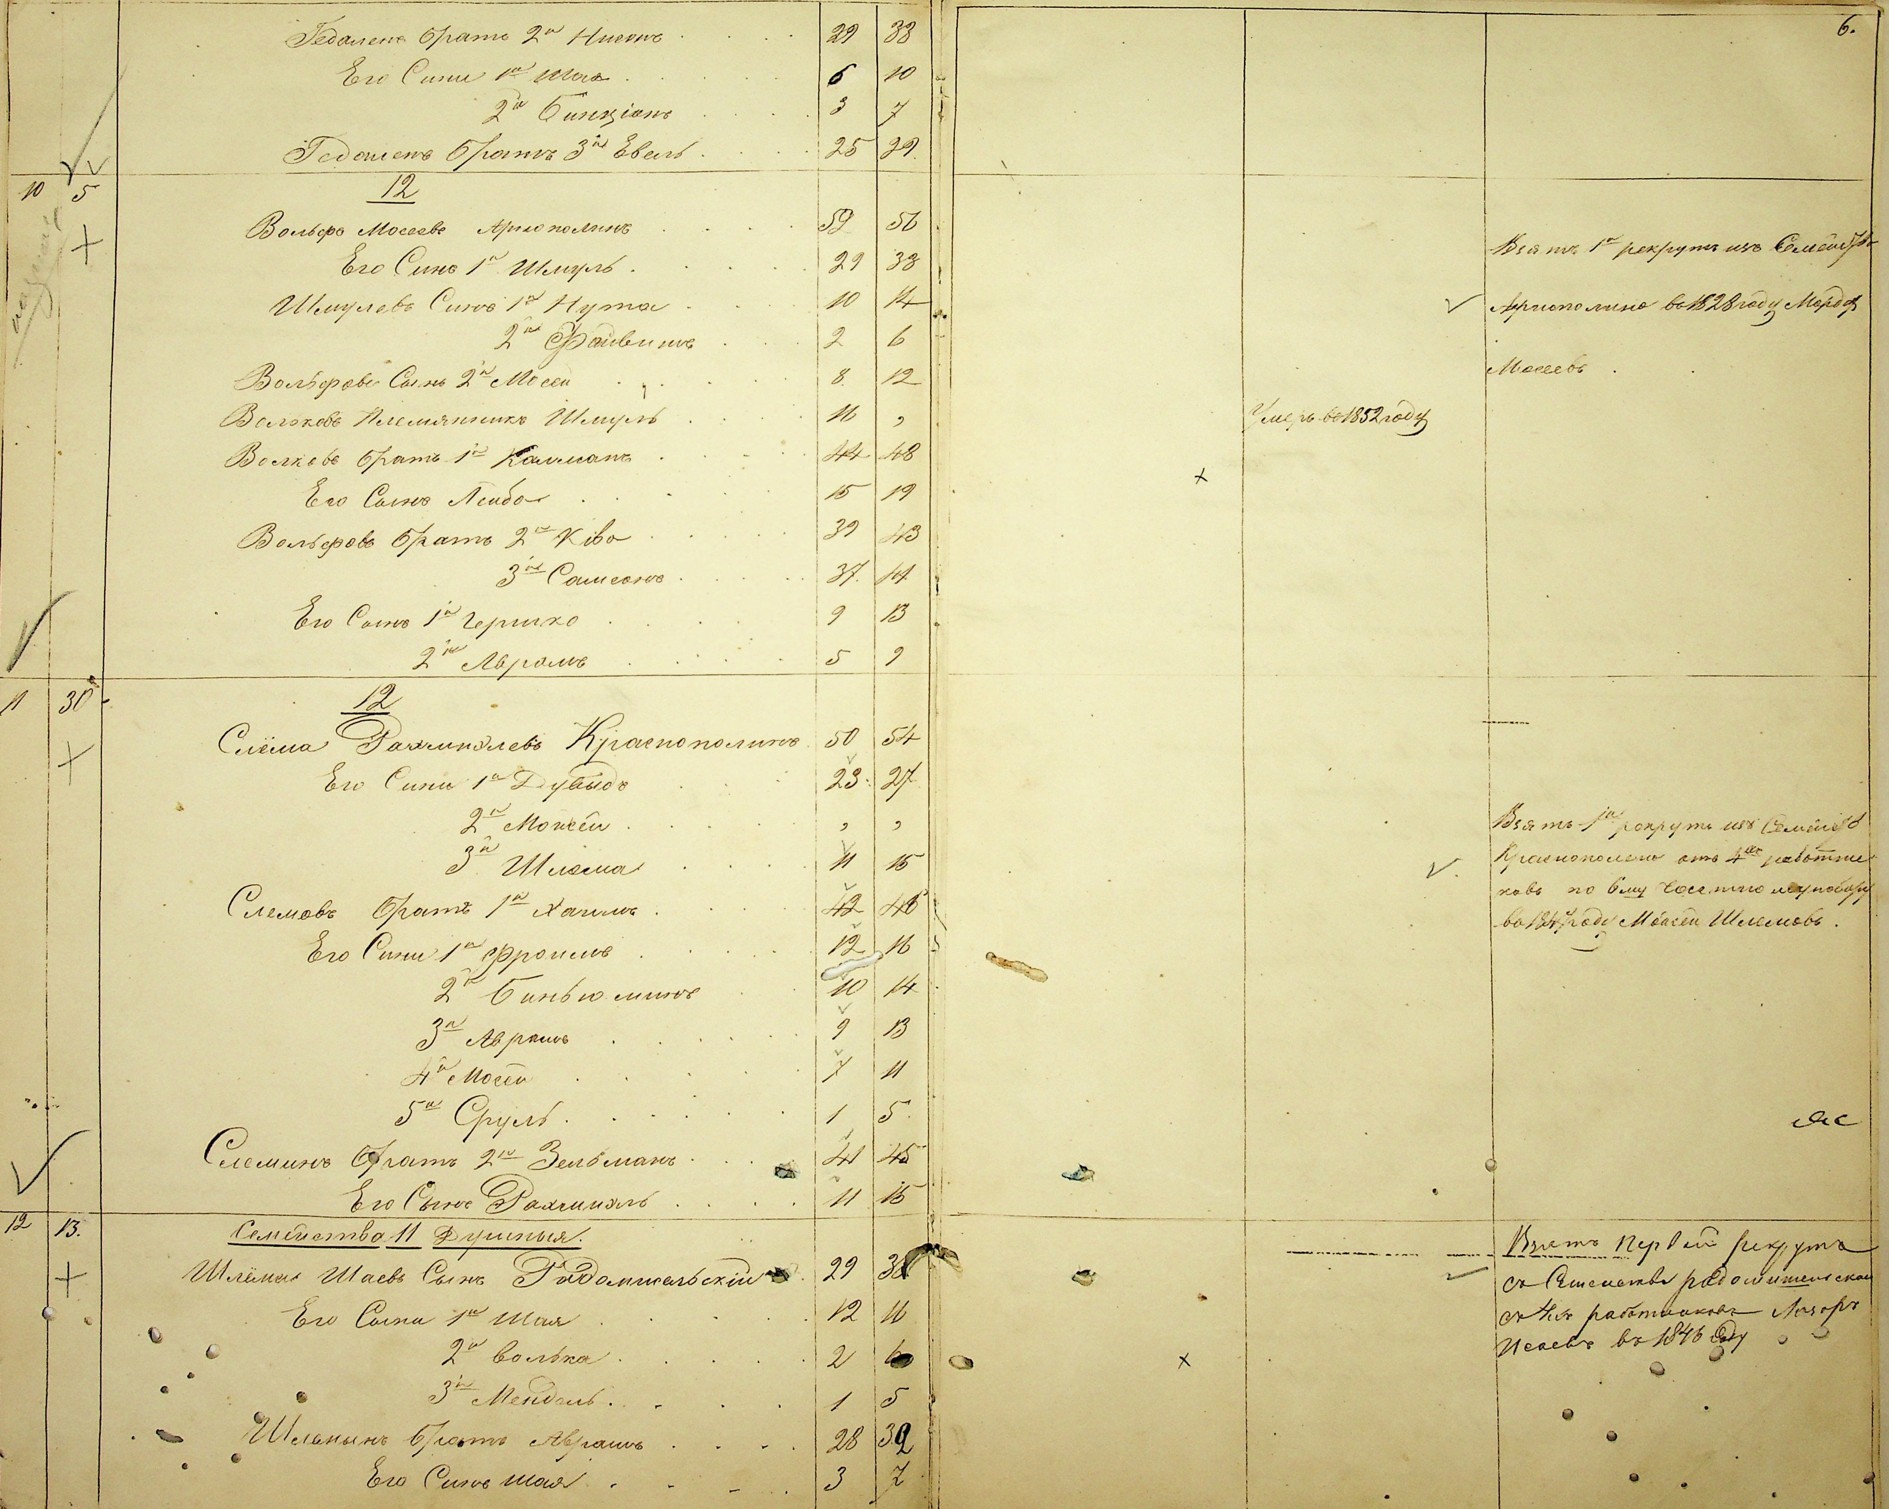 6.
Гедалевъ братъ 2й Нисонъ 29 33
Его Сыни 1й Шая 6 10
2й Бинціонъ 3 7
Гедалевъ братъ 3й Евель 25 29
10 5 12
Вольфъ Мосеевъ 59 56
Его Сынъ 1й Шмуль 29 33
Шмулевъ Сынъ 1й Нута 10 14
2й Файвишъ 2 6
Вольфовъ Сынъ 2й Мосей 8 12
Волковъ Племянникъ Шмуль 11 „
Волковъ братъ 1й Калманъ 44 48
Его Сынъ Лейба 15 19
Вольфовъ братъ 2й Кива 39 43
3й Самсонъ 37 41
Его Сынъ 1й Гершко 9 13
2й Аврамъ 5 9
Взятъ 1й рекрутъ изъ Семейства
въ 1828 году
Мосеевъ
Умеръ въ 1852 году
11 30 12
Слёма Рахмиилевъ Краснополинъ 50 54
Его Сыни 1й Дувидъ 23 27
2й Мошей „ „
3й Шлема 11 15
Слемовъ братъ 1й Хаимъ 42 46
Его Сыни 1й Фроимъ 12 16
2й Биньюминъ 10 14
3й Аврамъ 9 13
4й Мосей 7 11
5й Сруль 1 5
Слеминъ братъ 2й Зельманъ 41 45
Его Сынъ Рахмиэль 11 15
Взятъ 1й рекрутъ изъ Семейства
Краснополина отъ 4хъ работни
ковъ по 6му
въ 1847 году Мошей Шлемовъ.
12 13. Семейства 11 Душныя.
Шлёма Шаевъ Сынъ Радомисельскій 29 33
Его Сыни 1й Шая 12 16
2й Волька 2 6
3й Мендель 1 5
Шлемынъ братъ Аврамъ 28 32
Его Сынъ Шая 3 7
Взятъ Первый рекрутъ
съ Семейства
съ работниковъ Лазоръ
въ 1846 Году